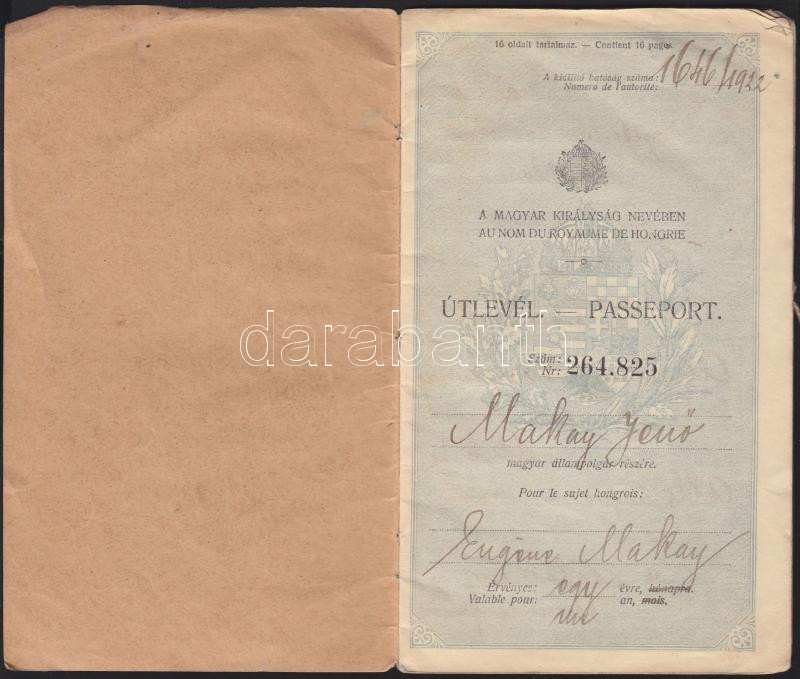 16 oldalt tartalmaz. — Contient 16 pages.
A kiállító hatóság száma: 1646/1922
Numero de l'autorité:
A MAGYAR KIRÁLYSÁG NEVÉBEN
AU NOM DU ROYAUME DE HONGRIE
ÚTLEVÉL. — PASSEPORT.
darabanth
Szám:
Nr: 264.825
Makay Jenő
magyar állampolgár részére.
Pour le sujet hongrois:
Eugène Makay
Érvényes: egy évre, hónapra.
Valable pour: un an, mois.